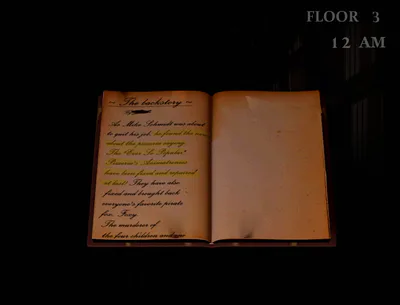 FLOOR 3
12 AM
The backstory
As Mike Schmidt was about
to quit his job, he found the
about the pizzeria saying,
The "Ever So Popular"
Pizzeria's Animatronics
have been fixed and repaired
at last! They have also
fixed and brought back
everyone's favorite pirate
fox, Foxy.
The murderer of
the four children